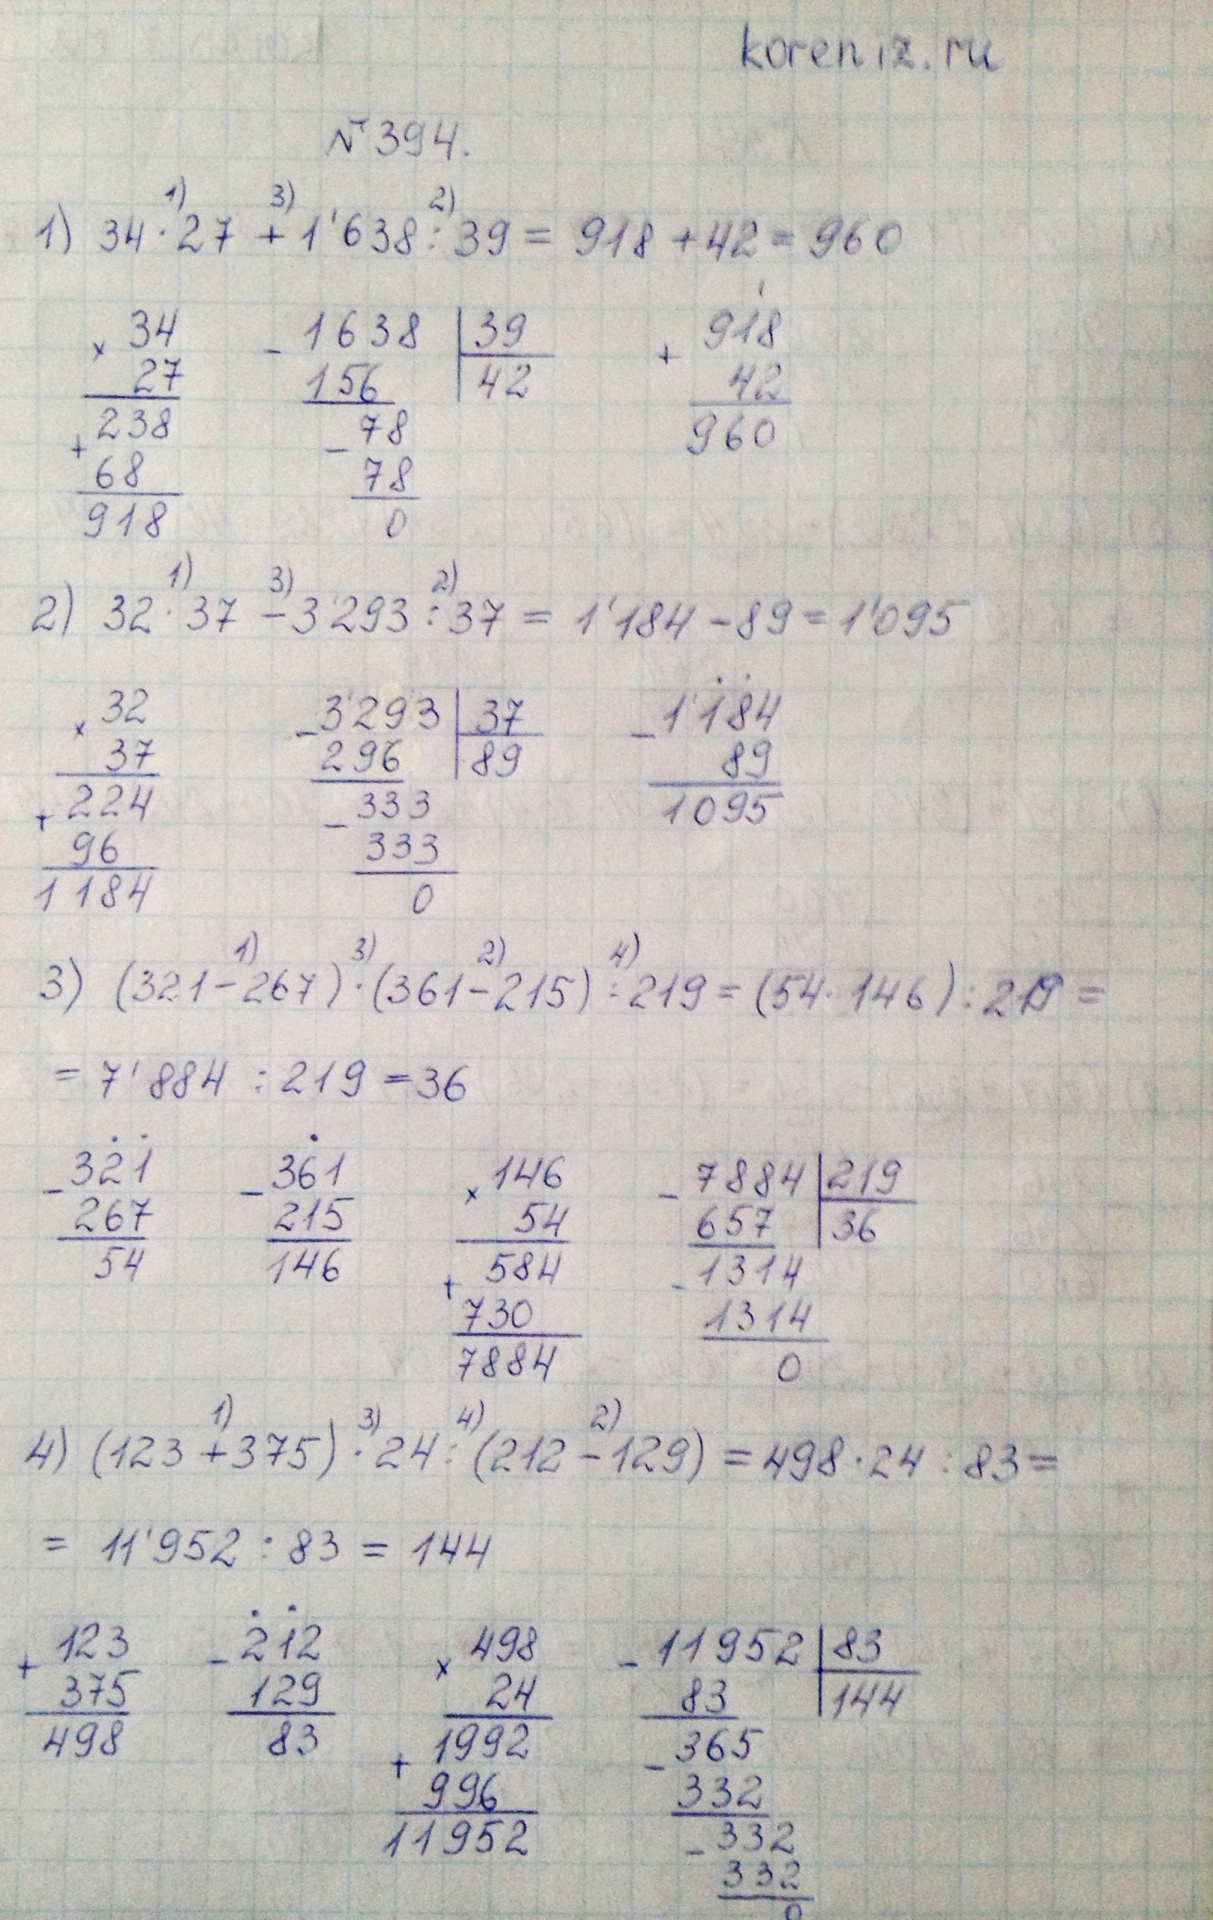 koreniz.ru
№394.
1) 3) 2)
1) 34·27 + 1'638:39 = 918 + 42 = 960
× 34 - 1638 | 39 + 918
27 156 42 42
238 78 960
+ 68 - 78
918 0
1) 3) 2)
2) 32·37 - 3'293:37 = 1'184 - 89 = 1'095
× 32 - 3'293 | 37 - 1'184
37 296 89 89
+ 224 333 1095
96 - 333
1184 0
1) 3) 2) 4)
3) (321-267)·(361-215):219 = (54·146):219 =
= 7'884 : 219 = 36
- 321 - 361 × 146 - 7884 | 219
267 215 54 657 36
54 146 584 - 1314
+ 730 1314
7884 0
1) 3) 4) 2)
4) (123+375)·24:(212-129) = 498·24:83 =
= 11'952 : 83 = 144
+ 123 - 212 × 498 - 11952 | 83
375 129 24 83 144
498 83 1992 - 365
+ 996 332
11952 - 332
332
0